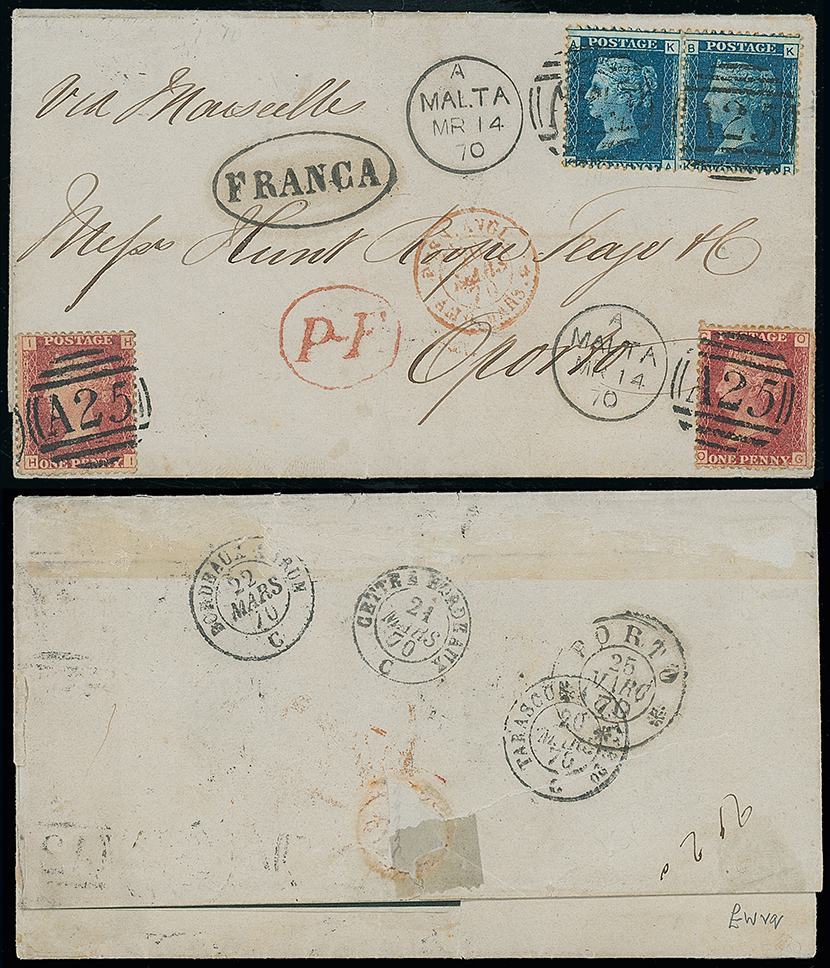 Via Marseilles
A
MALTA
MR 14
70
A K
POSTAGE
K A
B K
POSTAGE
K B
A25
FRANCA
Messrs Hunt Roope Teage & Co
ANGL.
MARS
70
P-F
Oporto
A
MALTA
MR 14
70
I H
POSTAGE
A25
H I
ONE PENNY
O
POSTAGE
A25
O G
ONE PENNY
BORDEAUX A IRUN
22
MARS
70
C
CETTE A BORDEAUX
21
MARS
70
C
PORTO
25
MARÇO
70
TARASCON
20
MARS
70